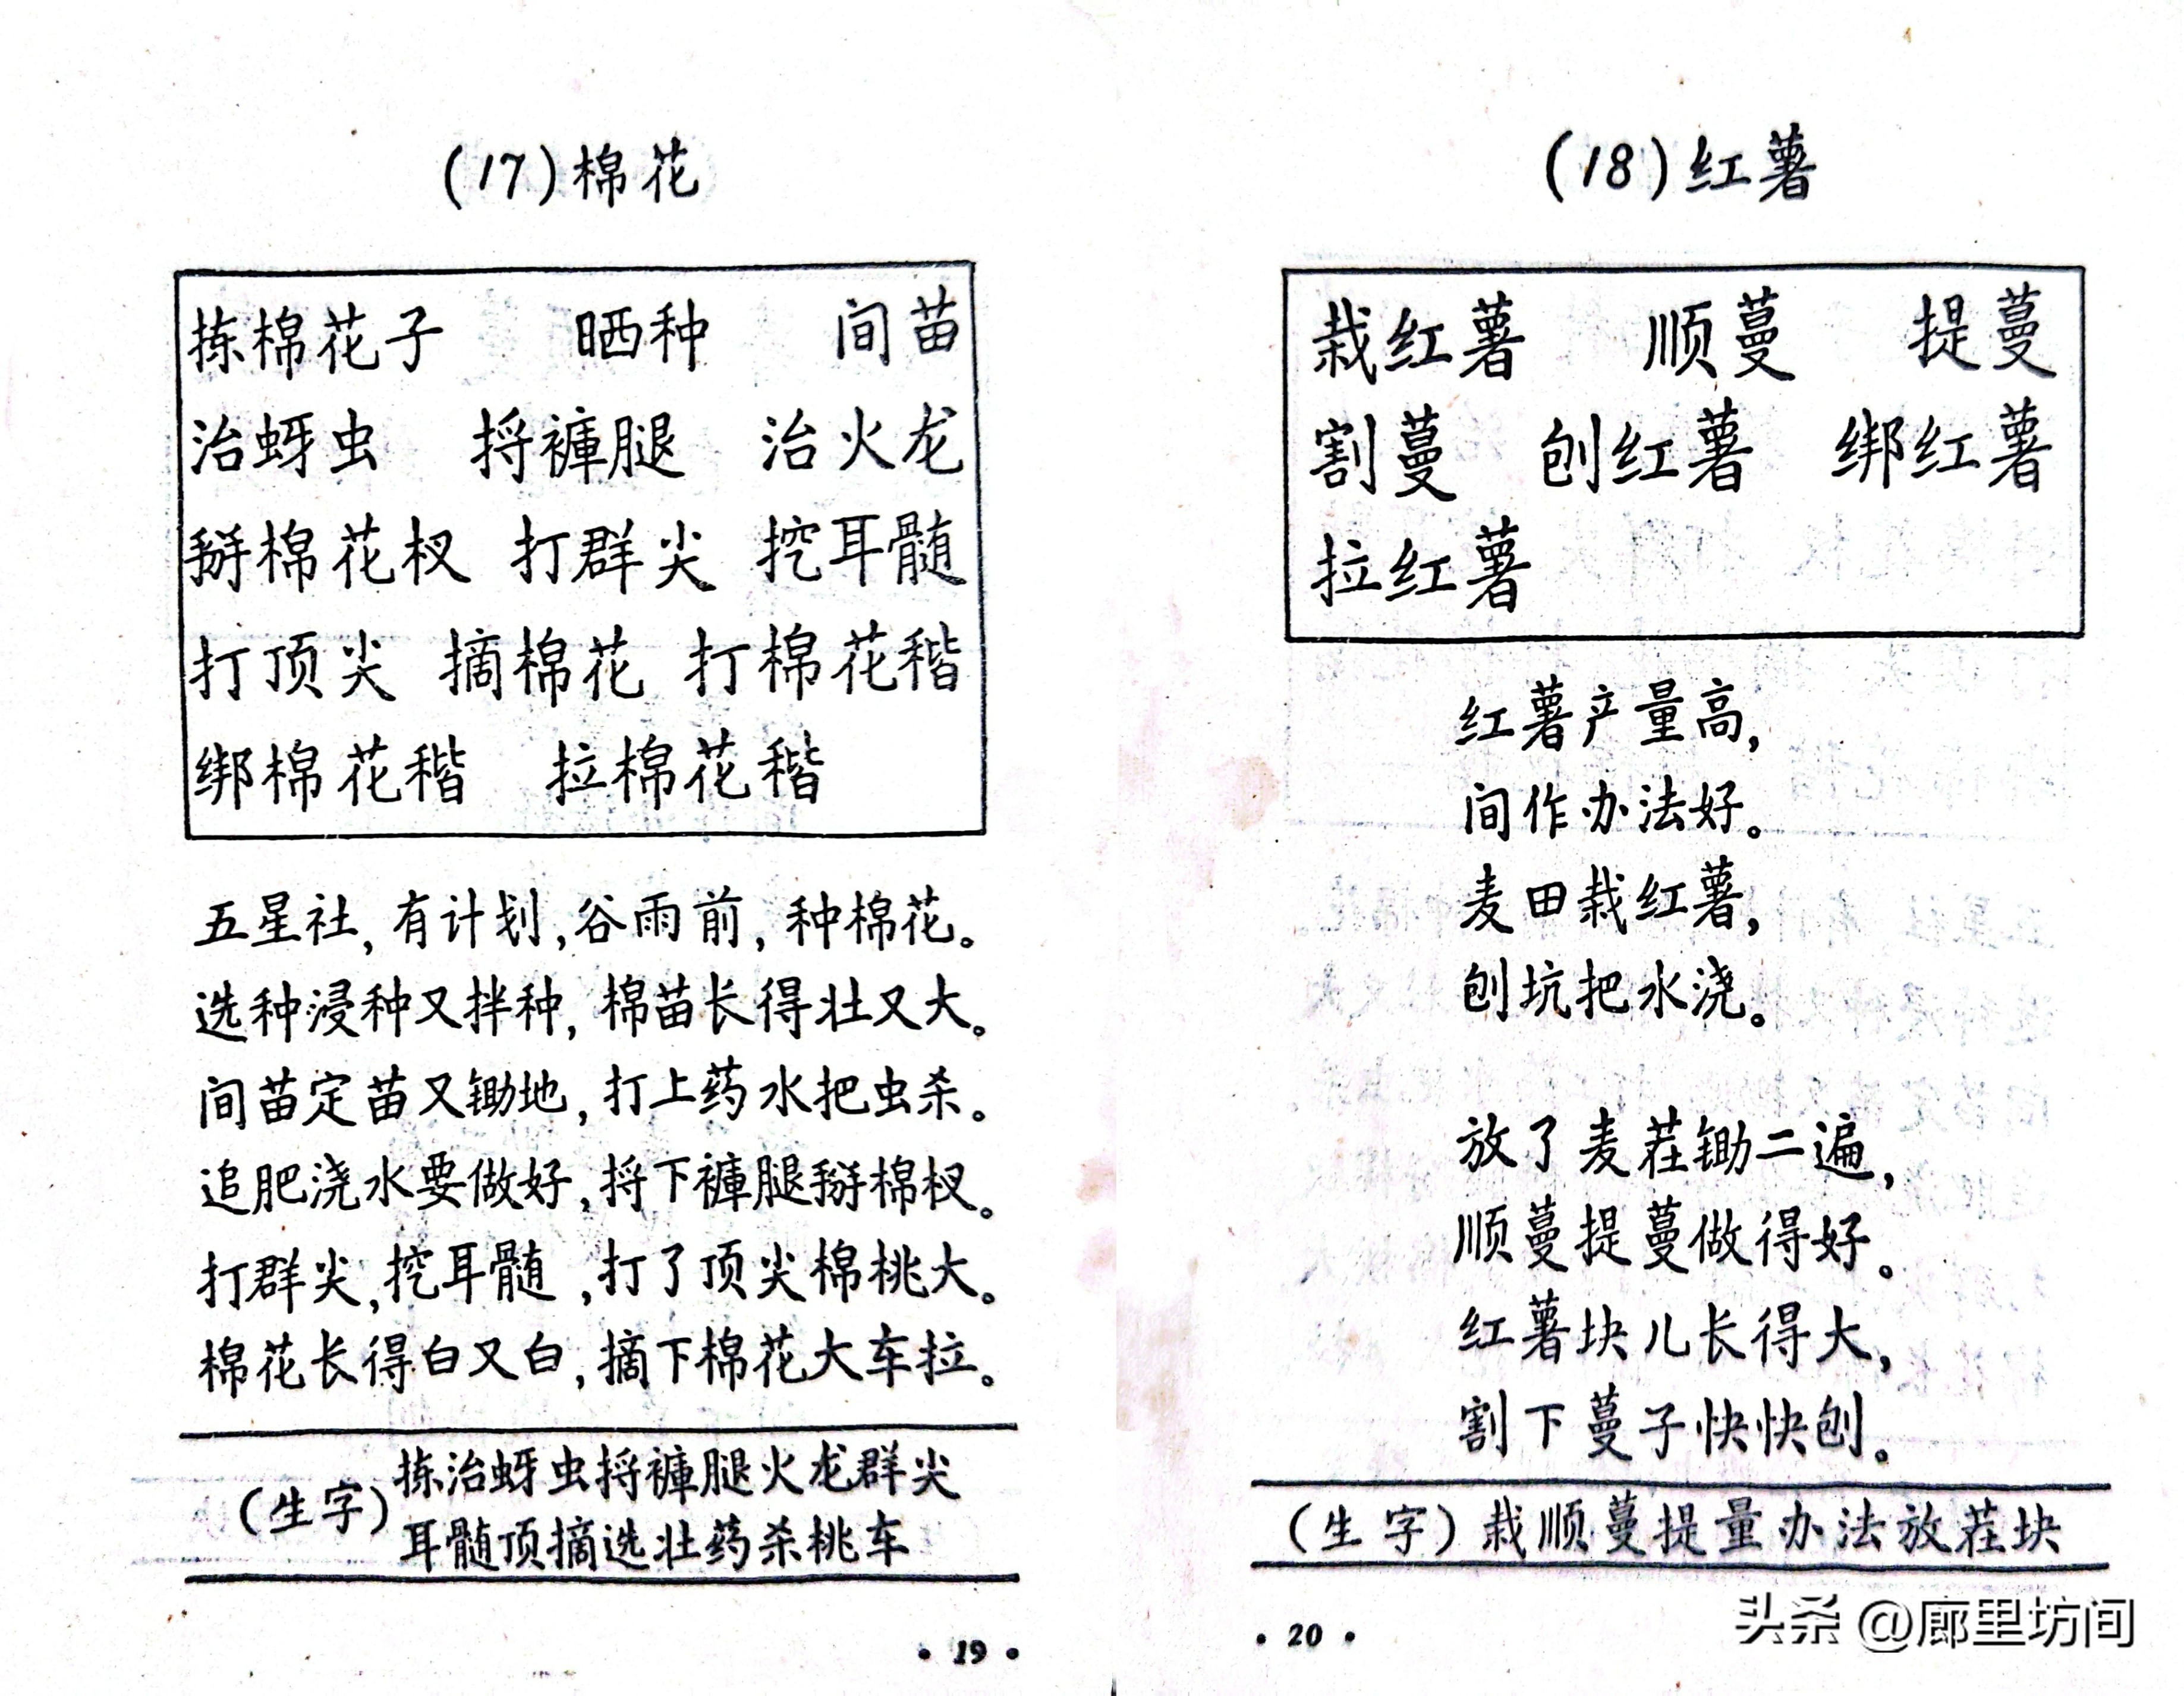 (17)棉花
拣棉花子 晒种 间苗
治蚜虫 捋褲腿 治火龙
掰棉花杈 打群尖 挖耳髓
打顶尖 摘棉花 打棉花稭
绑棉花稭 拉棉花稭
五星社,有计划,谷雨前,种棉花。
选种浸种又拌种,棉苗长得壮又大。
间苗定苗又锄地,打上药水把虫杀。
追肥浇水要做好,捋下褲腿掰棉杈。
打群尖,挖耳髓,打了顶尖棉桃大。
棉花长得白又白,摘下棉花大车拉。
(生字)拣治蚜虫捋褲腿火龙群尖
耳髓顶摘选壮药杀桃车
·19·
(18)红薯
栽红薯 顺蔓 提蔓
割蔓 刨红薯 绑红薯
拉红薯
红薯产量高,
间作办法好。
麦田栽红薯,
刨坑把水浇。
放了麦茬锄二遍,
顺蔓提蔓做得好。
红薯块儿长得大,
割下蔓子快快刨。
(生字)栽顺蔓提量办法放茬块
·20·
头条@廊里坊间